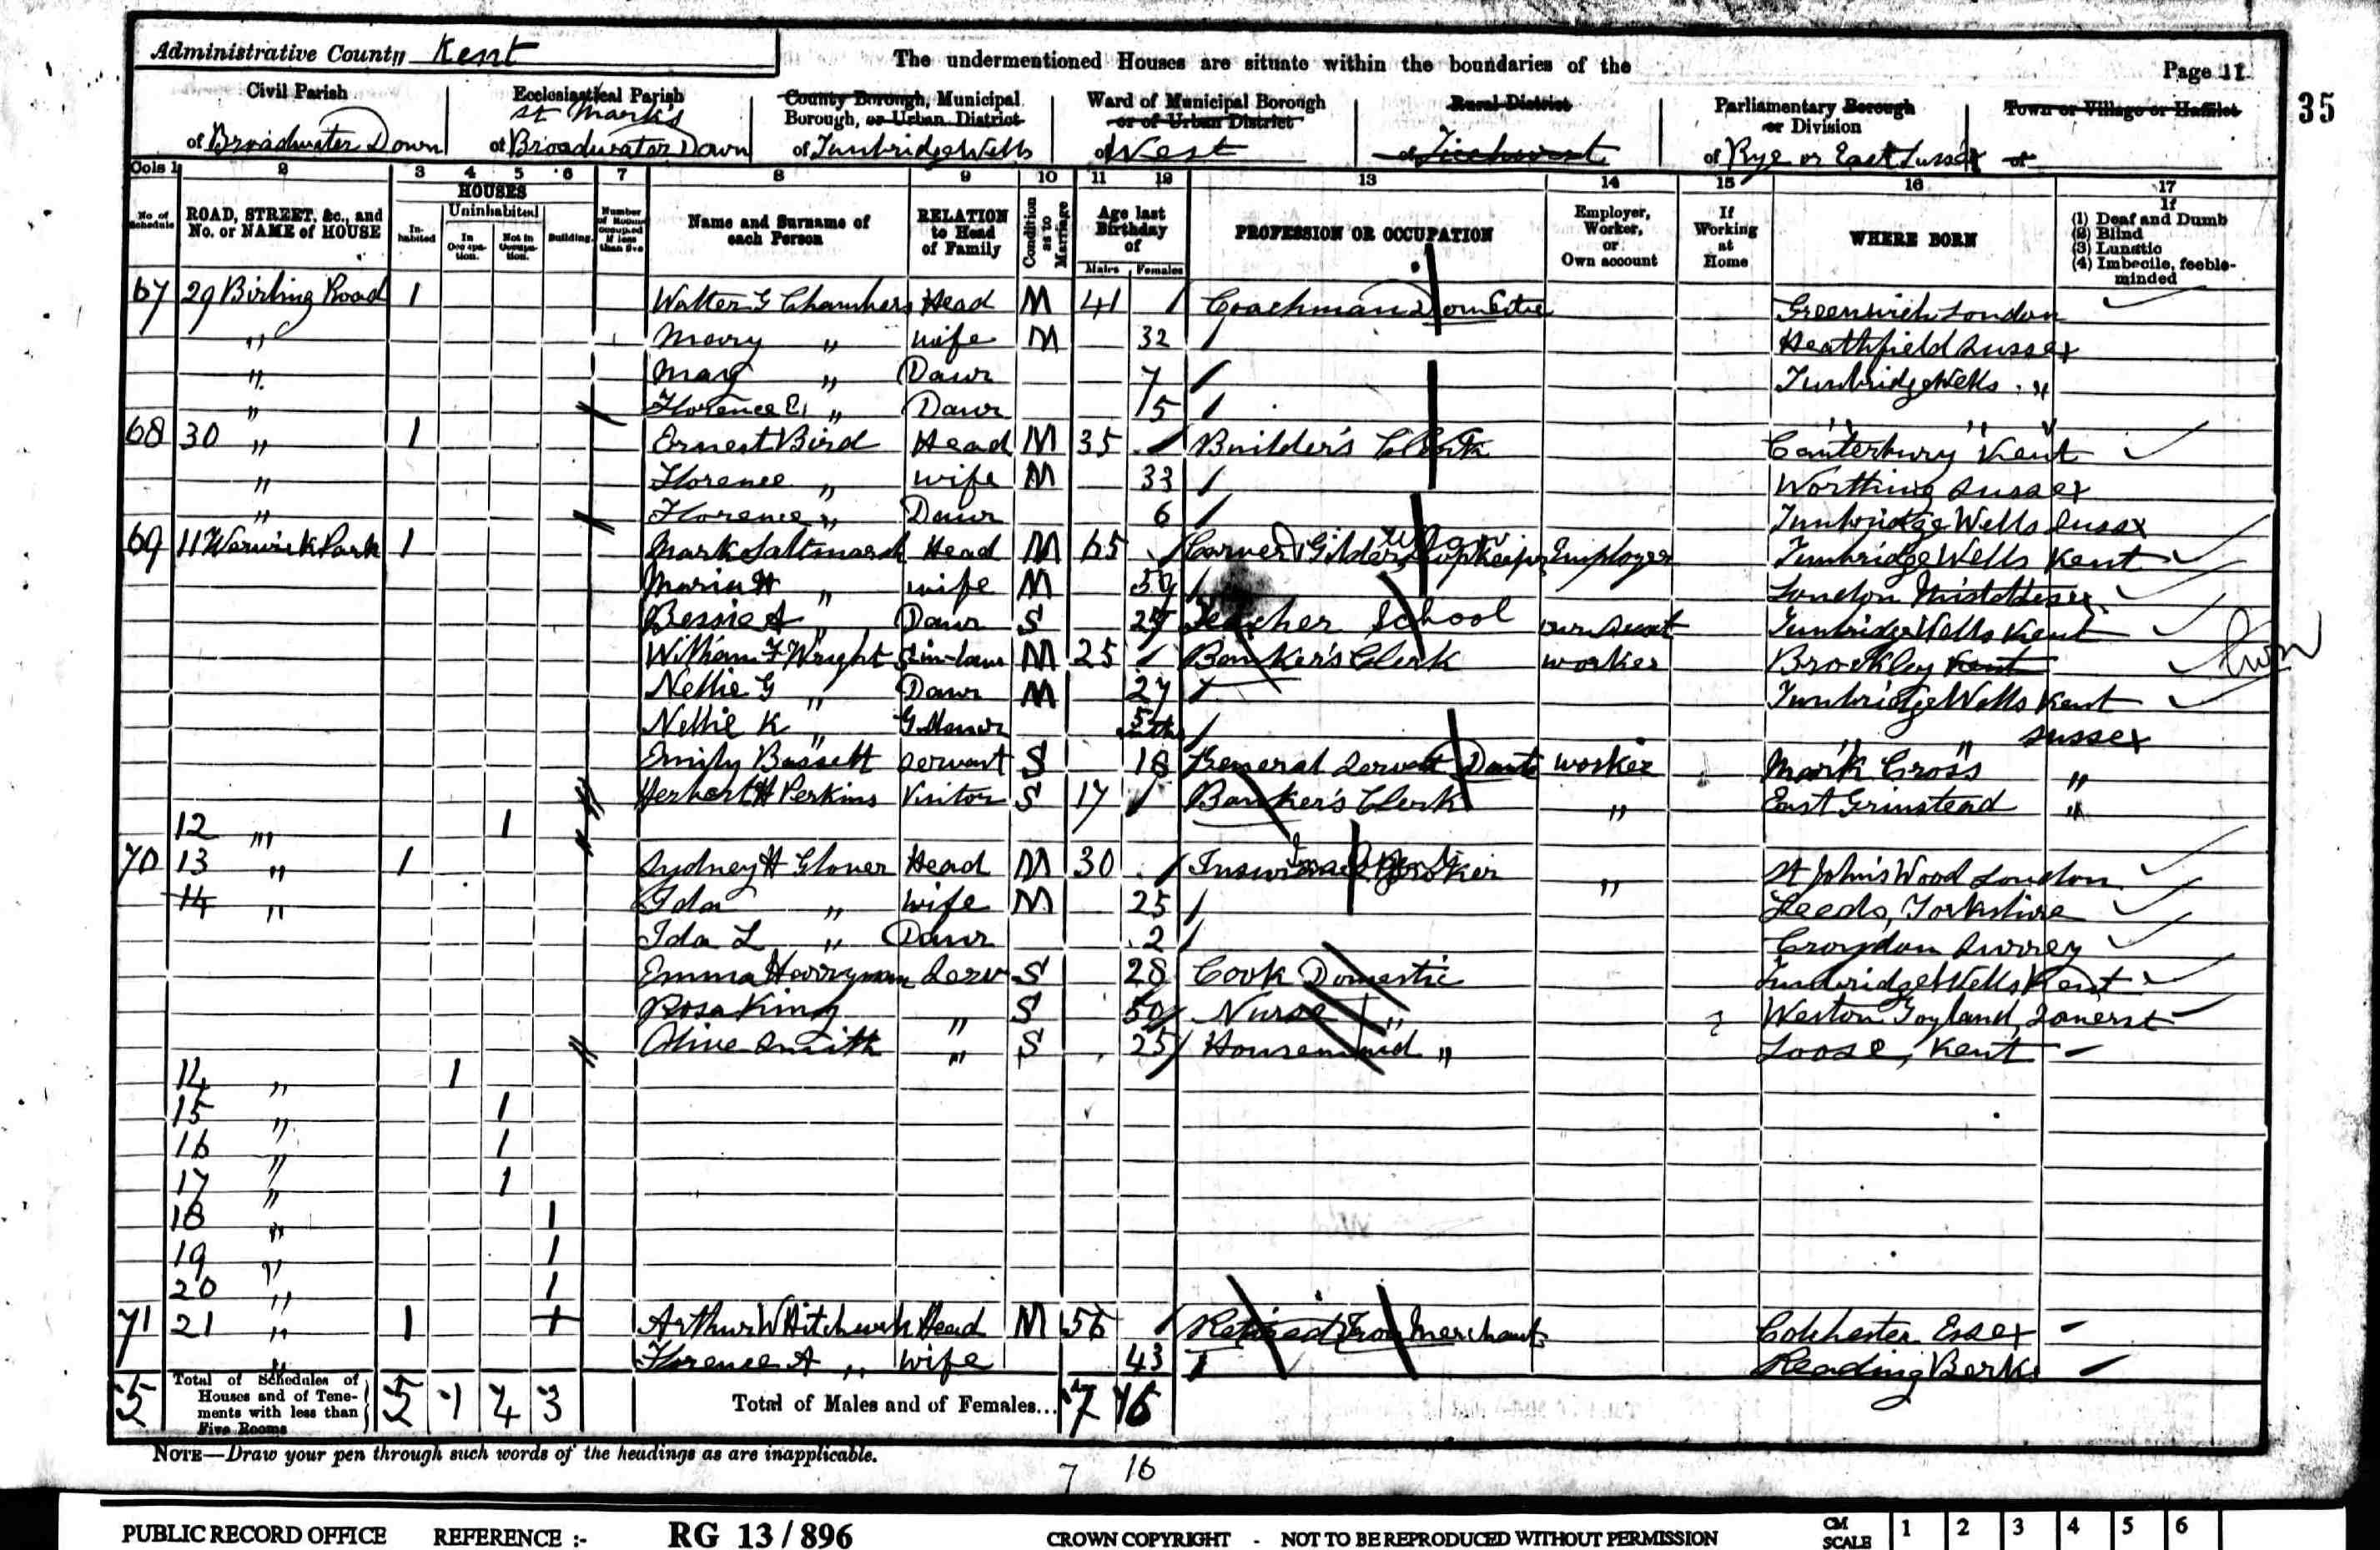 Administrative County Kent
The undermentioned Houses are situate within the boundaries of the
Page 11
35
Civil Parish of Broadwater Down
Ecclesiastical Parish of St Marks Broadwater Down
County Borough, Municipal Borough, or Urban District of Tunbridge Wells
Ward of Municipal Borough or of Urban District of West
Rural District of Ticehurst
Parliamentary Borough or Division of Rye or East Sussex
Town or Village or Hamlet of
Cols 1 2 3 4 5 6 7 8 9 10 11 12 13 14 15 16 17
No. of Schedule
ROAD, STREET, &c., and No. or NAME of HOUSE
HOUSES
Inhabited
Uninhabited
In Occupation.
Not in Occupation.
Building.
Number of Rooms occupied if less than five
Name and Surname of each Person
RELATION to Head of Family
Condition as to Marriage
Age last Birthday of
Males Females
PROFESSION OR OCCUPATION
Employer, Worker, or Own account
If Working at Home
WHERE BORN
If (1) Deaf and Dumb (2) Blind (3) Lunatic (4) Imbecile, feeble-minded
67 29 Birling Road 1 Walter G Chambers Head M 41 Coachman Domestic Greenwich London
" Mary " wife M 32 Heathfield Sussex
" May " Daur 7 Tunbridge Wells "
" Florence E " Daur 5 " " "
68 30 " 1 Ernest Bird Head M 35 Builder's Clerk Canterbury Kent
" Florence " wife M 33 Worthing Sussex
" Florence " Daur 6 Tunbridge Wells Sussex
69 11 Warwick Park 1 Mark Saltmarsh Head M 65 Carver & Gilder Shopkeeper Employer Tunbridge Wells Kent
Maria H " wife M London Middlesex
Bessie A " Daur S Teacher School Tunbridge Wells Kent
William F Wright S in-law M 25 Banker's Clerk worker Brockley Kent
Nellie G " Daur M 27 Tunbridge Wells Kent
Nellie K " G Daur 5 mths " " Sussex
Emily Bassett servant S 18 General Servant Domtc worker Mark Cross "
Herbert H Perkins Visitor S 17 Banker's Clerk " East Grinstead "
12 " 1
70 13 " 1 Sydney H Glover Head M 30 Insurance Broker " St John's Wood London
14 " Ida " wife M 25 Leeds, Yorkshire
Ida L " Daur 2 Croydon Surrey
Emma Harryman Serv S 28 Cook Domestic Tunbridge Wells Kent
Rosa King " S 50 Nurse " Weston Zoyland, Somerst
Olive Smith " S 25 Housemaid " Loose, Kent
14 " 1
15 " 1
16 " 1
17 " 1
18 " 1
19 " 1
20 " 1
71 21 " 1 Arthur W Head M 56 Retired Iron Merchant Colchester Essex
" Florence A " wife 43 Reading Berks
5 Total of Schedules of Houses and of Tenements with less than Five Rooms 5 1 4 3 Total of Males and of Females... 7 16
NOTE—Draw your pen through such words of the headings as are inapplicable.
7 16
PUBLIC RECORD OFFICE REFERENCE :- RG 13 / 896 CROWN COPYRIGHT - NOT TO BE REPRODUCED WITHOUT PERMISSION CM SCALE 1 2 3 4 5 6